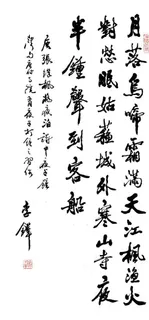 月落烏啼霜滿天江楓漁火
對愁眠姑蘇城外寒山寺夜
半鐘聲到客船
唐張繼楓橋夜泊詩
李鐸